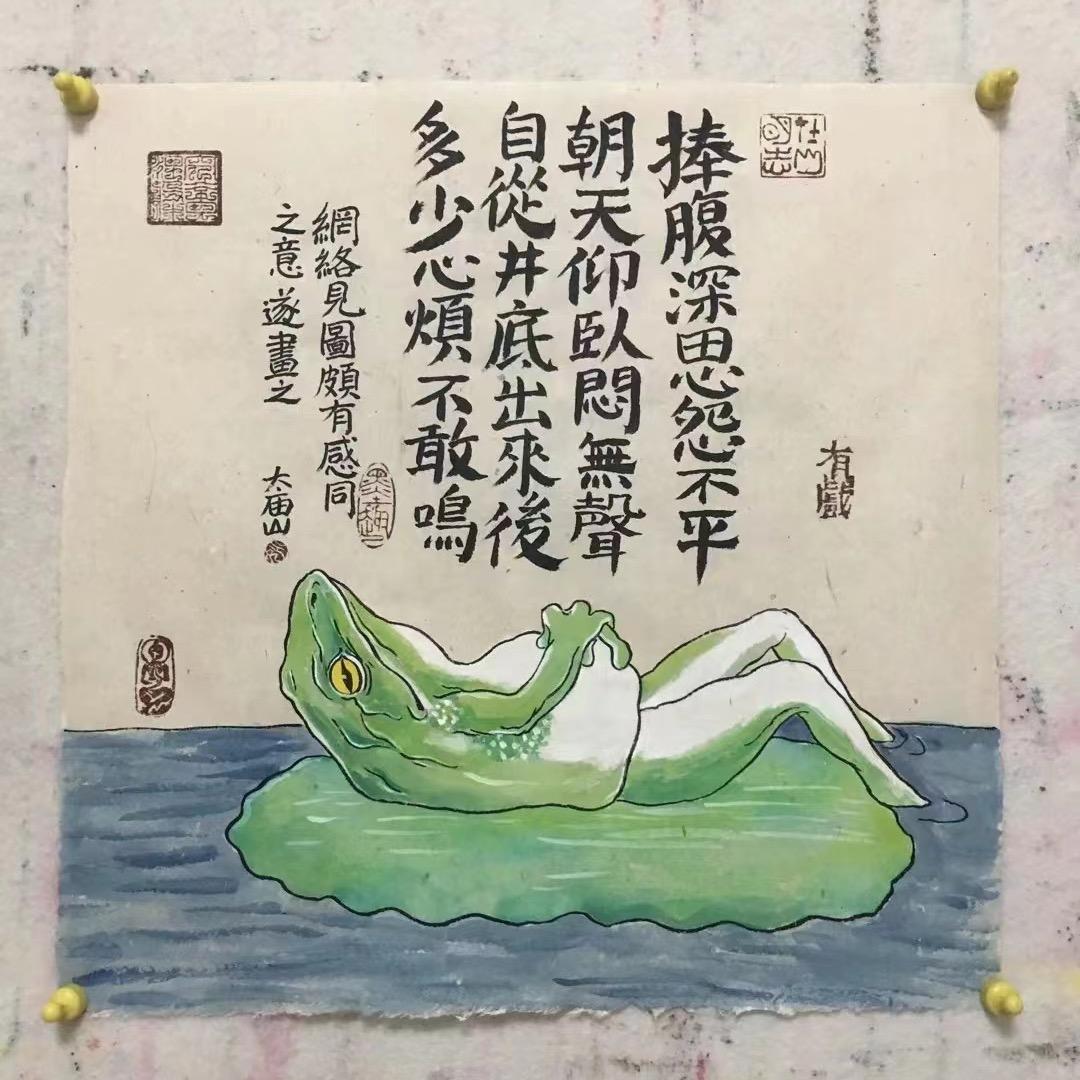 捧腹深思怨不平
朝天仰臥悶無聲
自從井底出來後
多少心煩不敢鳴
網絡見圖頗有感同
之意遂畫之
太庙山
有戲